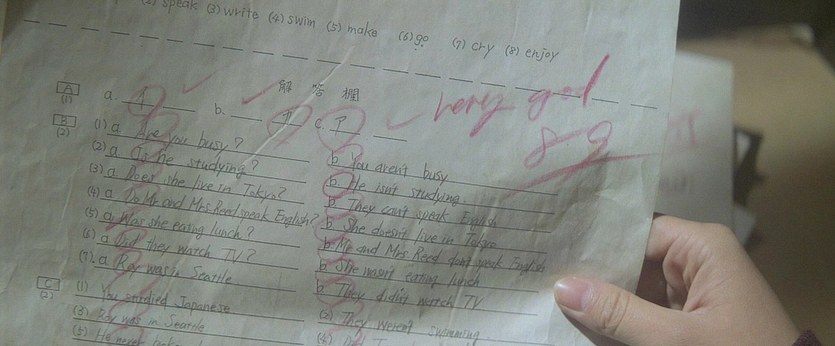 speak (3) write (4) swim (5) make (6) go (7) cry (8) enjoy
解 答 欄
very good
89
A a. b. c. ア
(1)
B (1) a Are you busy? b You aren't busy
(2) (2) a Is he studying? b He isn't studying.
(3) a Does she live in Tokyo? b They can't speak English
(4) a Do Mr and Mrs Reed speak English? b She doesn't live in Tokyo
(5) a Was she eating lunch? b Mr and Mrs Reed don't speak English
(6) a Did they watch TV? b She wasn't eating lunch
(7) a Roy was in Seattle b They didn't watch TV
C (1) You studied Japanese (2) They weren't swimming
(2) (3) Roy was in Seattle
(5) He never